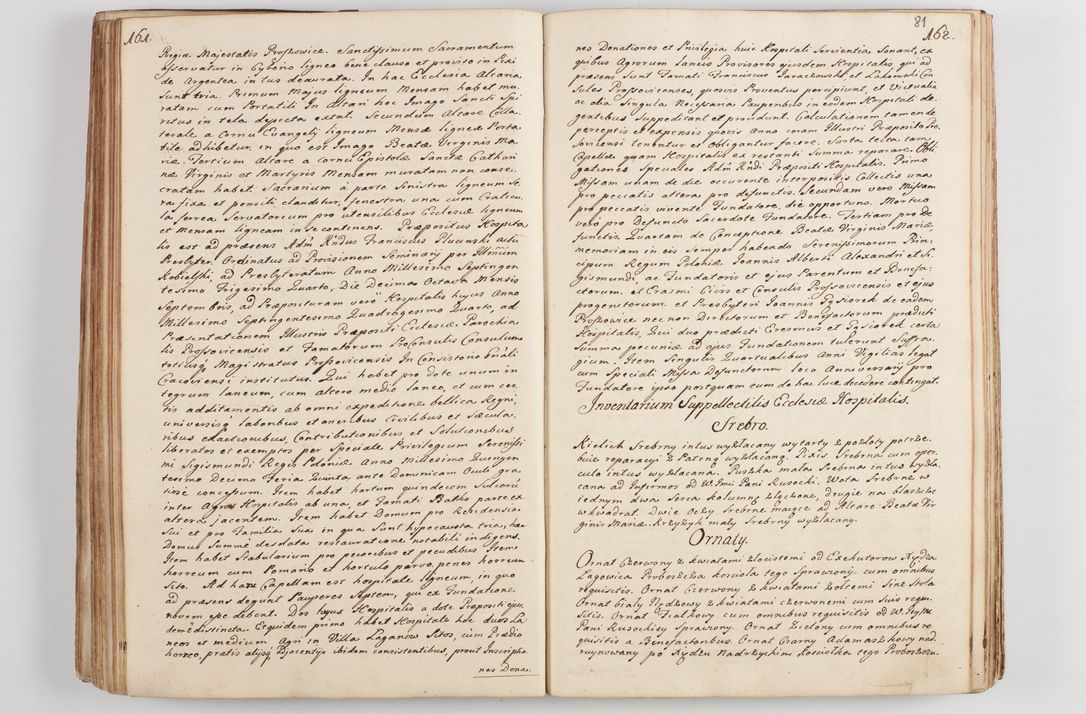 161.
Regiæ Majestatis Proszowice. Sanctissimum Sacramentum
observatur in Cyborio ligneo bene clauso et proviso in Pixi
de Argentea intus deaurata. In hac Ecclesia Altaria
sunt tria. Primum Majus ligneum Mensam habet mu
ratam cum Portatili In Altari hoc Imago Sancti Spi
ritus in tela depicta extat. Secundum Altare Colla
terale a Cornu Evangelij ligneum Mensæ ligneæ Porta
tile adhibetur, in quo est Imago Beatæ Virginis Ma
riæ. Tertium Altare a cornu Epistolæ Sanctæ Cathari
næ Virginis et Martyris Mensam muratam non conse
cratam habet. Sacrarium à parte Sinistra ligneum Se
ra fixa et pensili clauditur, fenestra una cum Craticu
la ferrea Servatorium pro utensilibus Ecclesiæ ligneum
et Mensam ligneam in se continens. Præpositus Hospita
lis est ad præsens Adm Rndus Franciscus Plucinski
Presbyter Ordinatus ad Provisionem Seminarij per Illmum
Kobielski, ad Presbyteratum Anno Millesimo Septingen
tesimo Trigesimo Quarto, Die Decima Octava Mensis
Septembris, ad Præposituram verò Hospitalis hujus Anno
Millesimo Septingentesimo Quadragesimo Quarto, ad
Præsentationem Illustris Præpositi Ecclesiæ Parochia
lis Proszovicensis et Famatorum ProConsulis Consulum
totiusq Magistratus Proszovicensis In Consistorio Gnali
Cracoviensi institutus. Qui habet pro dote unum in
tegrum laneum, cum altero medio laneo, et cum cer
tis additamentis ab omni expeditione bellica Regni,
universisq laboribus et oneribus Civilibus et Sæcula
ribus exactionibus, Contributionibus et Solutionibus
liberatos et exemptos per Speciale Privilegium Serenissi
mi Sigismundi Regis Poloniæ Anno Millesimo Quingen
tesimo Decimo Feria Quinta ante Dominicam Oculi gra
tiosè concessum. Item habet hortum quindecim Sulcorum
inter Agros Hospitalis ab una, et Famati Batko parte ex
altera, jacentem. Item habet Domum pro Residentia
sui et pro Familia sua in qua sunt hypocausta tria, hæc
Domus Summè desolata restauratione notabili indigens.
Item habet Stabularium pro pecoribus et pecudibus Item
horreum cum Pomario et hortulo parvo, penes horreum
sito. Ad hanc Capellam est hospitale ligneum, in quo
ad præsens degunt Pauperes Septem, qui ex Fundatione
novem esse debent. Dos hujus Hospitalis a dote Præpositi ejus
dem distincta. Equidem primo habet Hospitale hoc duos La
neos et medium Agri in Villa Laganow sitos, cum Prædio
horreo, pratis alijsq adjacentijs ibidem consistentibus, prout Inscriptio
nes Dona-
81
162.
nes Donationes et Privilegia huic Hospitali Servientia Sonant, ex
quibus Agrorum Sancti Provisores ejusdem Hospitalis, qui ad
præsens sunt Famati Franciscus Jaraczowski et Zakowski Con
sules Proszovicenses, quosvis Proventus percipiunt, et Victualia
ac alia Singula Necessaria Pauperibus in eodem Hospitali de
gentibus Suppeditant et provident. Calculationem tamen de
perceptis et expensis quovis Anno coram Illustri Præposito Pro
szovicensi tenentur et obligantur facere. Sarta tecta tam
Capellæ quam Hospitalis ex restanti Summa reparare. Obli
gationes Speciales Adm Rndi Præpositi Hospitalis. Primo
Missam unam de die occurente interpositis Collectis una
pro peccatis altera pro defunctis. Secundam vero Missam
pro peccatis vivente Fundatore, die opportuno. Mortuo
verò pro Defuncto Sacerdote Fundatore. Tertiam pro De
functis. Quartam de Conceptione Beatæ Virginis Mariæ,
memoriam in eis Semper habendo Serenissimorum Prin
cipum Regum Poloniæ. Joannis Alberti Alexandri et Si
gismundi, ac Fundatoris et ejus Parentum et Benefa
ctorum, et Erasmi Civis et Consulis Proszovicensis et ejus
progenitorum, et Presbyteri Joannis Gęsiorek de eadem
Proszowice nec non Directorum et Benefactorum prædicti
Hospitalis, Qui duo prædicti Erasmus et Gąsiorek certa
Summa pecuniæ ad ejus Fundationem tulerunt Suffra
gium. Item Singulis Quartualibus Anni Vigilias legat
cum Speciali Missa Defunctorum loco Anniversarij pro
Fundatore ipso postquam eum de hac luce decedere contingat.
Inventarium Suppellectilis Ecclesiæ Hospitalis.
Srebro.
Kielich Srebrny intus wyzłacany wytarty z pozłoty potrze
buie reparacyi z Pateną wyzłacaną. Pixis Srebrna cum oper
culo intus wyzłacana. Puszka mała Srebrna intus wyzła
cana ad Infirmos od W Imci Pani Rusocki. Wota Srebrne w
iednym dwa Serca kolumną złączone, drugie na blaszce
w kwadrat. Dwie Oczy Srebrne maiące ad Altare Beatæ Vir
ginis Mariæ. Krzyżyk mały Srebrny wyzłacany.
Ornaty.
Ornat Czerwony z kwiatami złocistemi od Exekutorow Xiędza
Łagowica Proboszcza kosciola tego Sprawiony, cum omnibus
requisitis. Ornat Czerwony z kwiatami żółtemi Sine Stola
Ornat Biały Pizdzowy z kwiatami czerwonemi cum suis requi
sitis. Ornat Fiałkowy cum omnibus requisitis od W. Jeyms
Pani Rusockiey sprawiony. Ornat Zielony cum omnibus re
quisitis a Benefactoribus. Ornat Czarny Adamaszkowy nad
ruynowany po Xiędzu Nadrzychim Kosciołka tego Proboszczu.